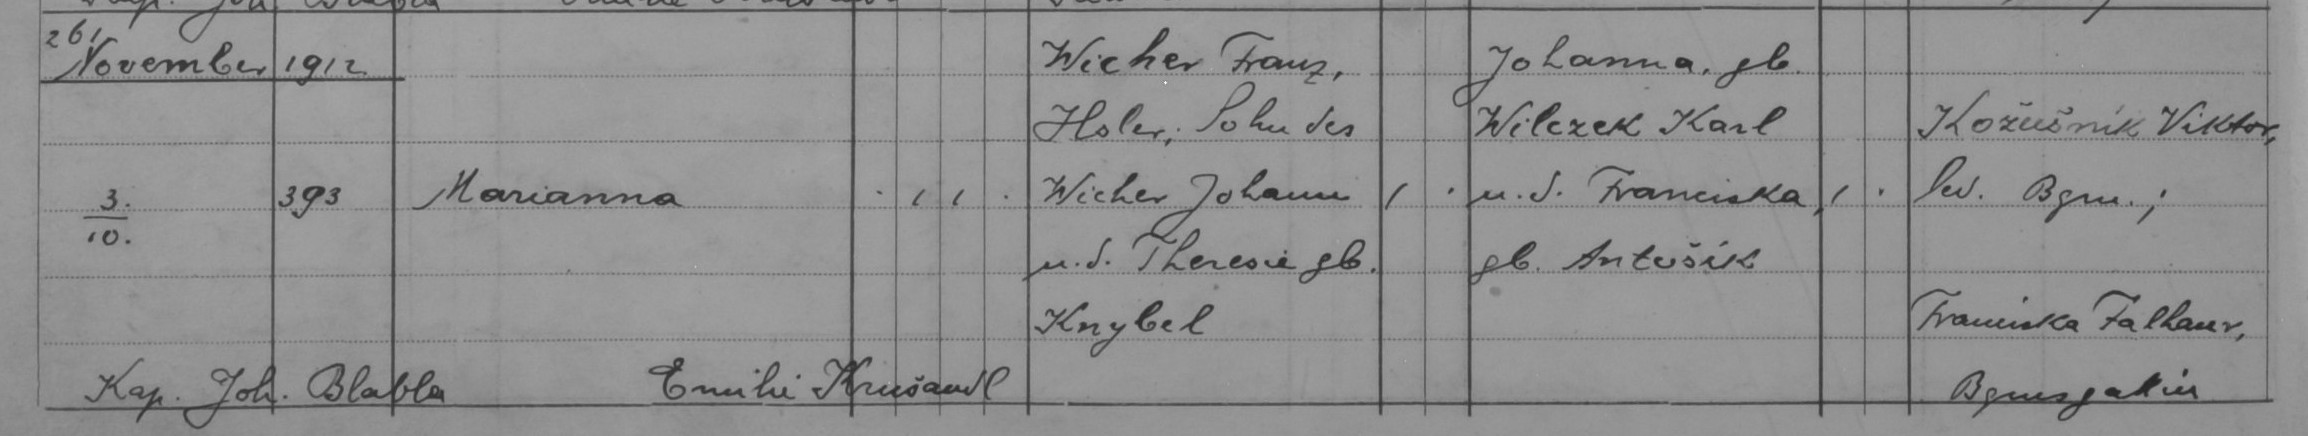 261
November 1912
Wicher Franz, Johanna, gb.
Hsler, Sohn des Wilczek Karl Kožušnik Viktor,
3. 393 Marianna Wicher Johann u. d. Franciska, led. Bgm.;
10.
u. d. Theresie gb. gb. Antošik
Knybel Franciska Falhaur,
Kap. Joh. Blabla Emilie Bgmsgattin